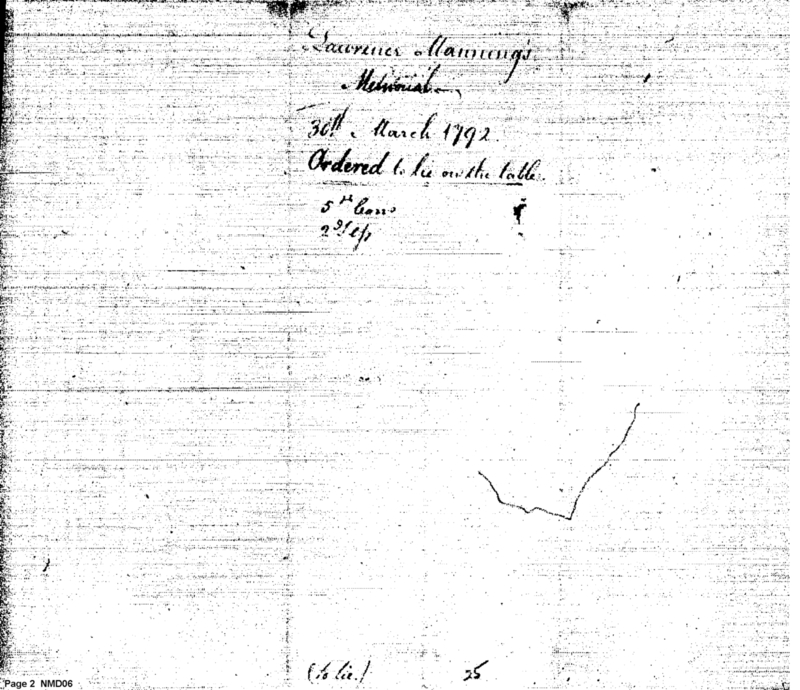 Lawrence Manning's
Memorial
30th March 1792.
Ordered to lie on the table.
(to lie.) 25
Page 2 NMD06